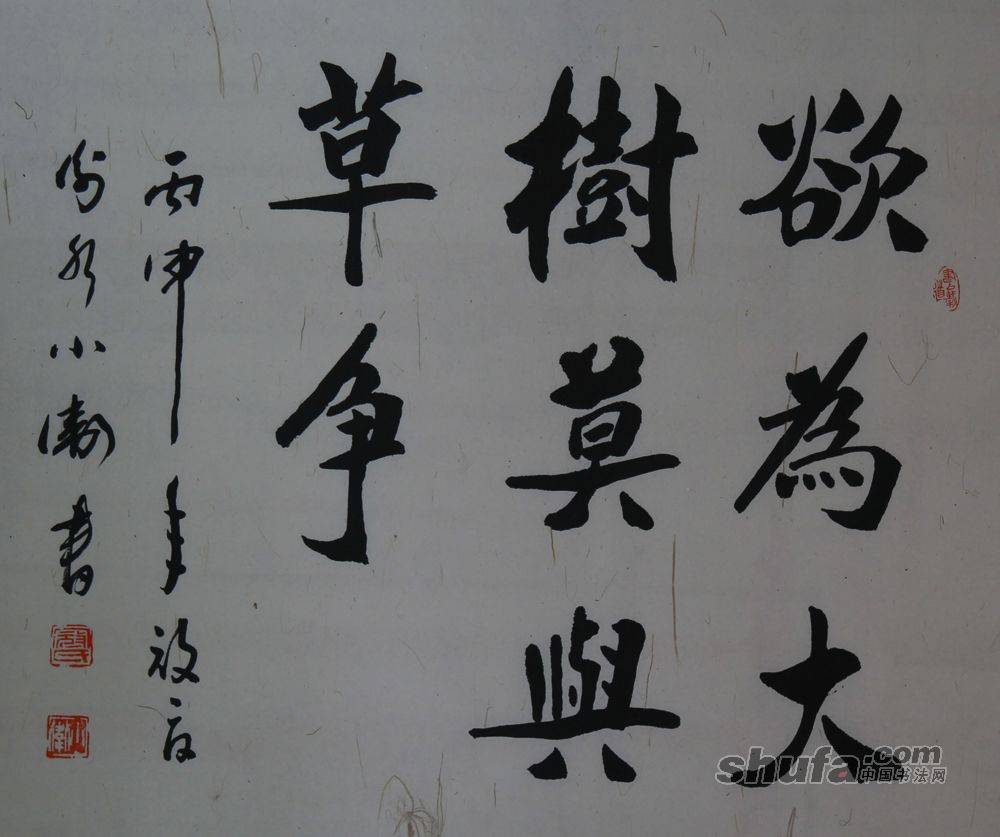 欲為大
樹莫與
草争
丙申年初夏
小衛書
shufa.com
中国书法网